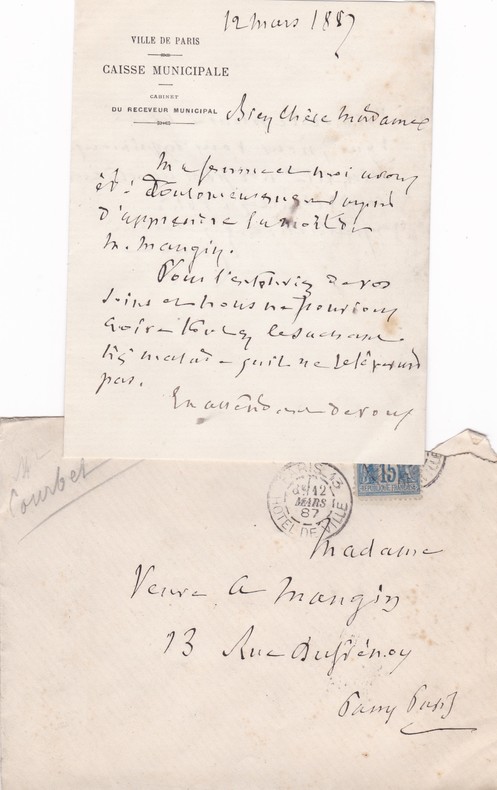 12 mars 1887
VILLE DE PARIS
CAISSE MUNICIPALE
CABINET
DU RECEVEUR MUNICIPAL
Bien chère Madame
Ma femme et moi avons
été douloureusement surpris
d'apprendre la mort de
M. Mangin.
Vous l'entouriez de vos
soins et nous ne pouvions
croire tout en le sachant
très malade qu'il ne se
pas.
En attendant de vous
Courbet
PARIS 13
12
MARS
87
HOTEL DE VILLE
15
REPUBLIQUE FRANÇAISE
Madame
Veuve A Mangin
13 Rue Dufrénoy
Passy Paris